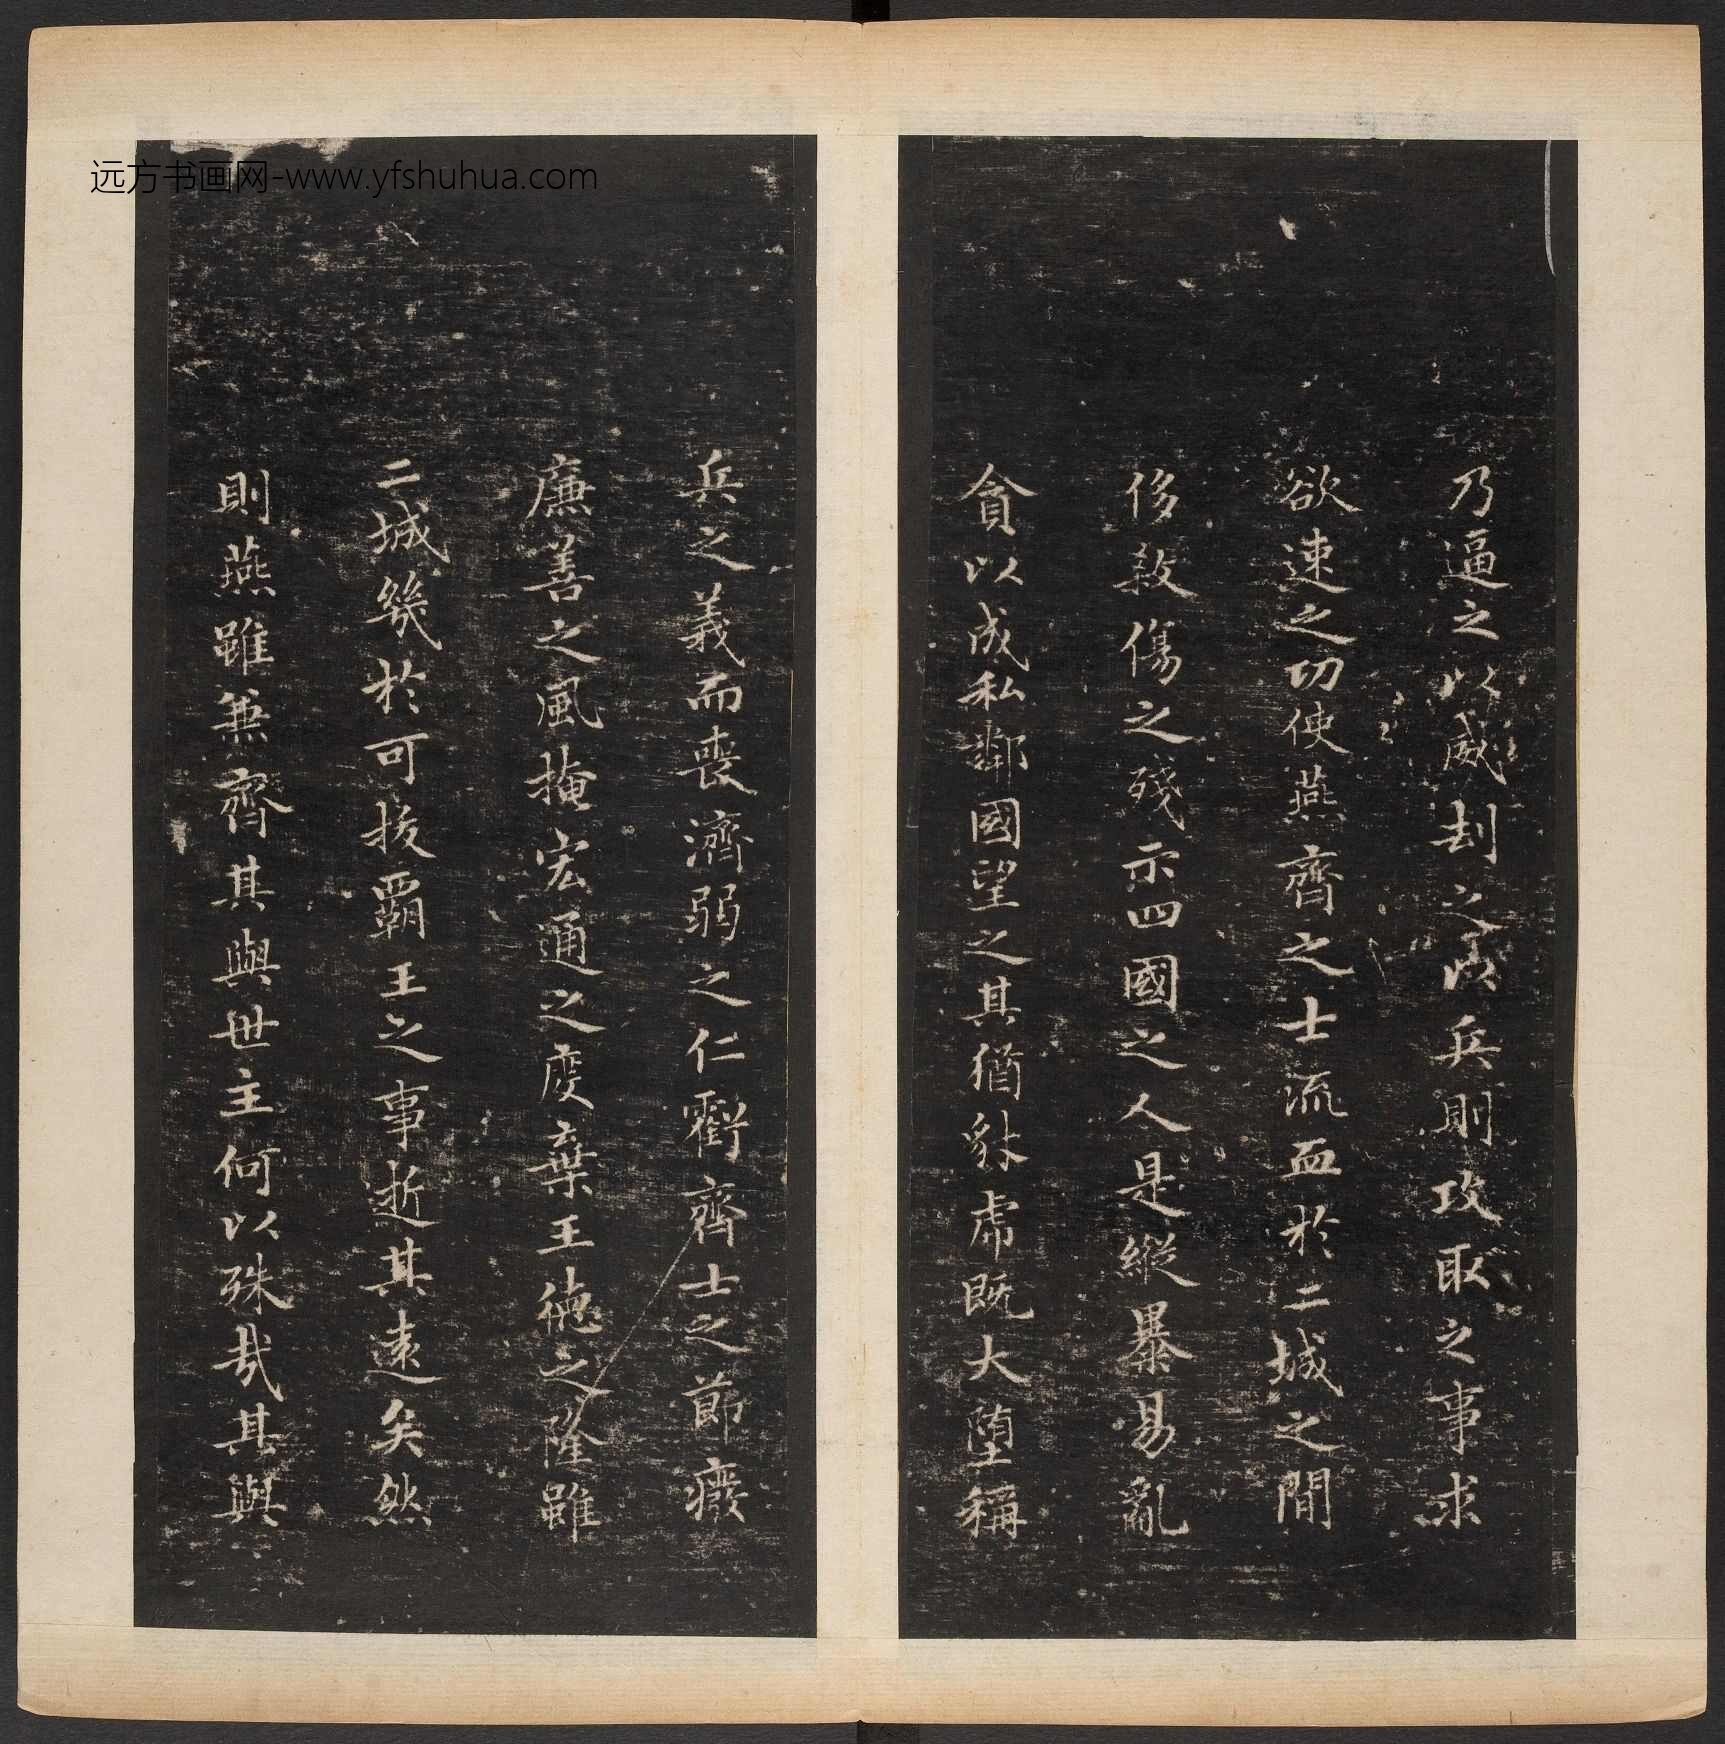 远方书画网-www.yfshuhua.com
乃逼之以威刦之以兵則攻取之事求
欲速之功使燕齊之士流血於二城之間
侈敘傷之殘示四國之人是縱暴易亂
貪以成私鄰國望之其猶豺虎既大墮稱
兵之義而喪濟弱之仁虧齊士之節癈
廉善之風掩宏通之度棄王德之隆雖
二城幾於可拔霸王之事逝其遠矣然
則燕雖兼齊其與世主何以殊哉其與